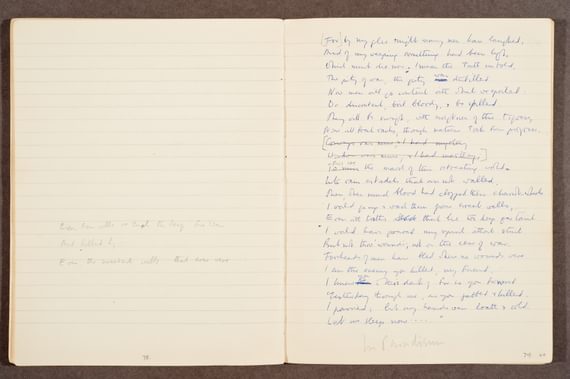 Even
And filled by
Even the
78
[For] by my glee might many men have laughed,
And of my weeping something had been left,
Which must die now. I mean the truth untold,
The pity of war, the pity war distilled.
Now men will go content with what we spoiled.
Or discontent, boil bloody, & be spilled.
They will be swift, with swiftness of the tigress,
None will break ranks, though nations trek from progress.
[Courage was mine, & I had mystery
Wisdom was mine, & I had mastery;]
To miss the march of this retreating world
Into vain citadels that are not walled.
Then when much blood had clogged their chariot-wheels
I would go up & wash them from sweet wells,
Even with truths that lie too deep for taint.
I would have poured my spirit without stint
But not through wounds; not on the cess of war.
Foreheads of men have bled where no wounds were.
I am the enemy you killed, my friend.
I knew you in this dark; for so you frowned
Yesterday through me, as you jabbed & killed.
I parried; but my hands were loath & cold.
Let us sleep now ....
79